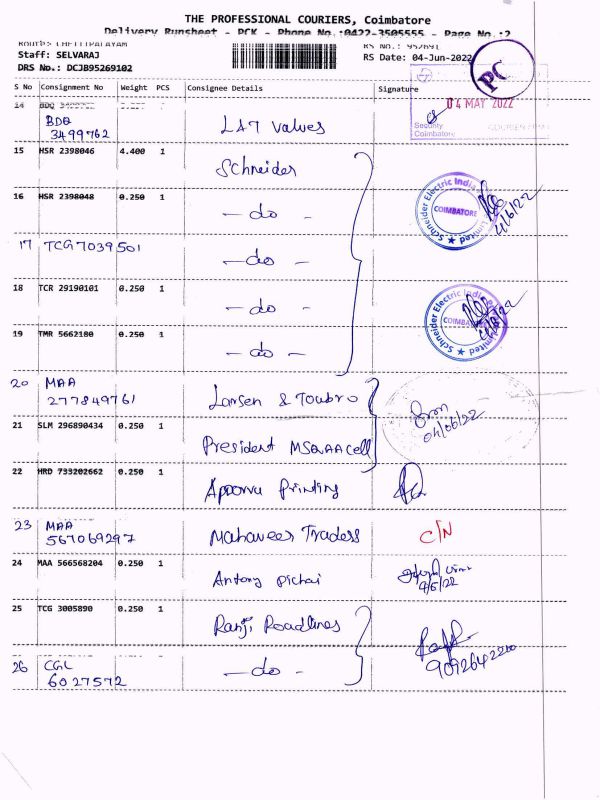 THE PROFESSIONAL COURIERS, Coimbatore
Delivery Runsheet - PCK - Phone No.:0422-3505555 - Page No.:2
Route: CHETTIPALAYAM
Staff: SELVARAJ
DRS No.: DCJB95269102
RS No.: 952691
RS Date: 04-Jun-2022
PC
S No Consignment No Weight PCS Consignee Details Signature
04 MAY 2022
Security
Coimbatore
14 BDQ
BDQ
3499762 L&T Valves
15 HSR 2398046 4.400 1 Schneider
16 HSR 2398048 0.250 1 - do -
Schneider Electric India Limited
COIMBATORE
4/6/22
17 TCG7039501 - do -
18 TCR 29190101 0.250 1 - do -
19 TMR 5662180 0.250 1 - do -
Schneider Electric India Limited
20 MAA
277849761 Larsen & Toubro
04/06/22
21 SLM 296890434 0.250 1 President
22 HRD 733202662 0.250 1 Apoorva Printing
23 MAA
567069297 Mahaveer Traders C/N
24 MAA 566568204 0.250 1 Antony Pichai
4/6/22
25 TCG 3005890 0.250 1 Ranji Roadlines
26 CGL
6027572 - do -